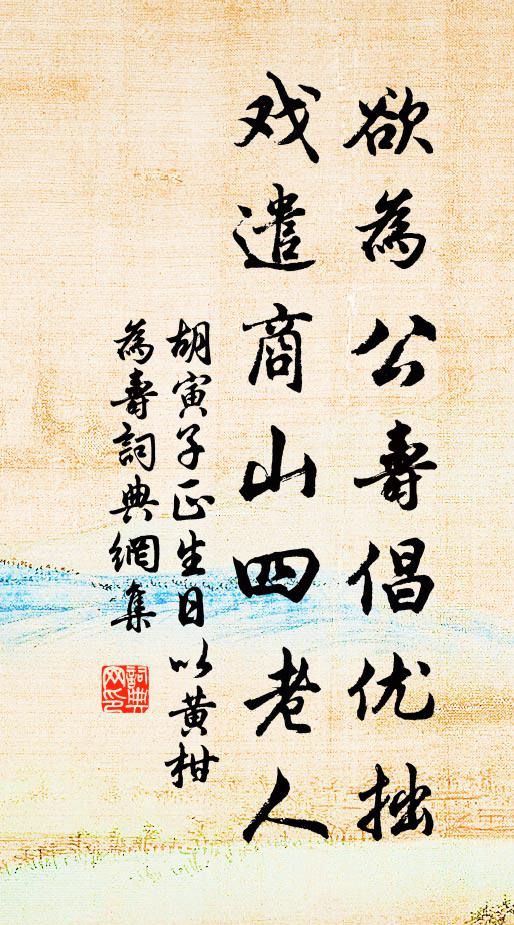 欲為公壽倡优拙
戏遣商山四老人
胡寅子正生日以黄柑
為壽詞典網集
詞典网印